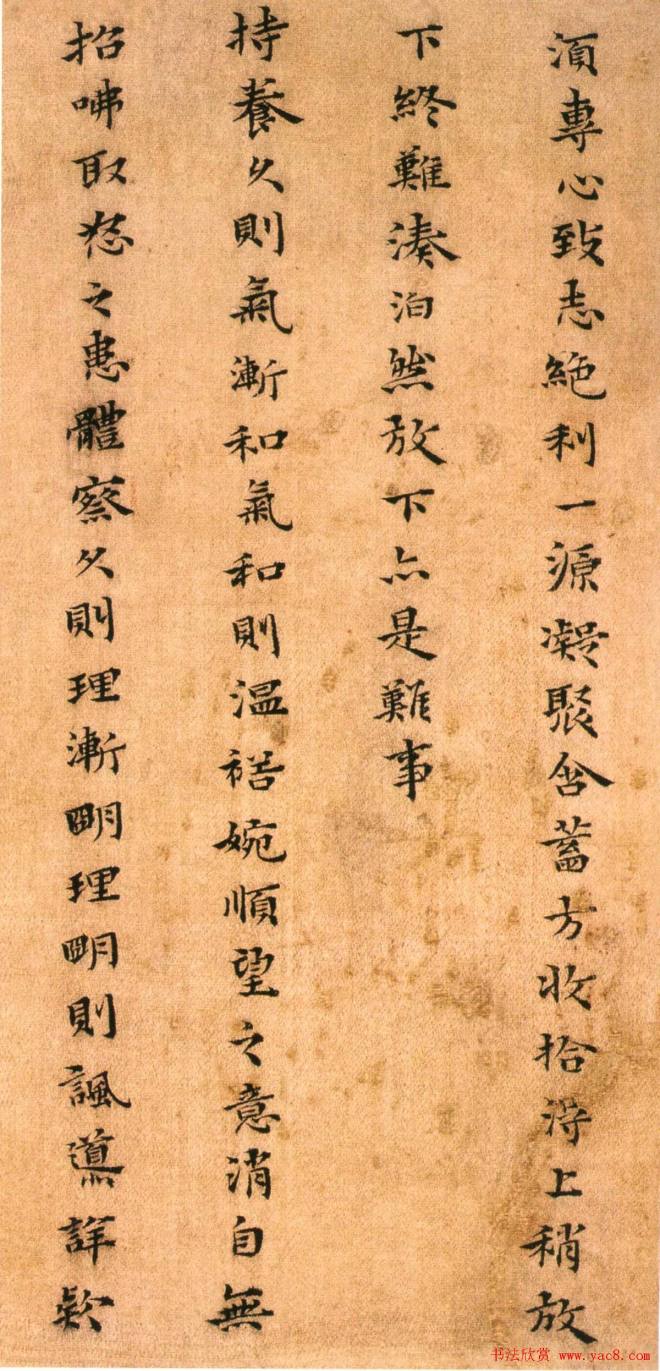 須專心致志絶利一源凝聚含蓄方收拾淂上稍放
下終難湊泊然放下亦是難事
持養久則氣漸和氣和則温裕婉順望之意消自無
招咈取怒之患體察久則理漸明理明則諷導詳欵
书法欣赏 www.yac8.com